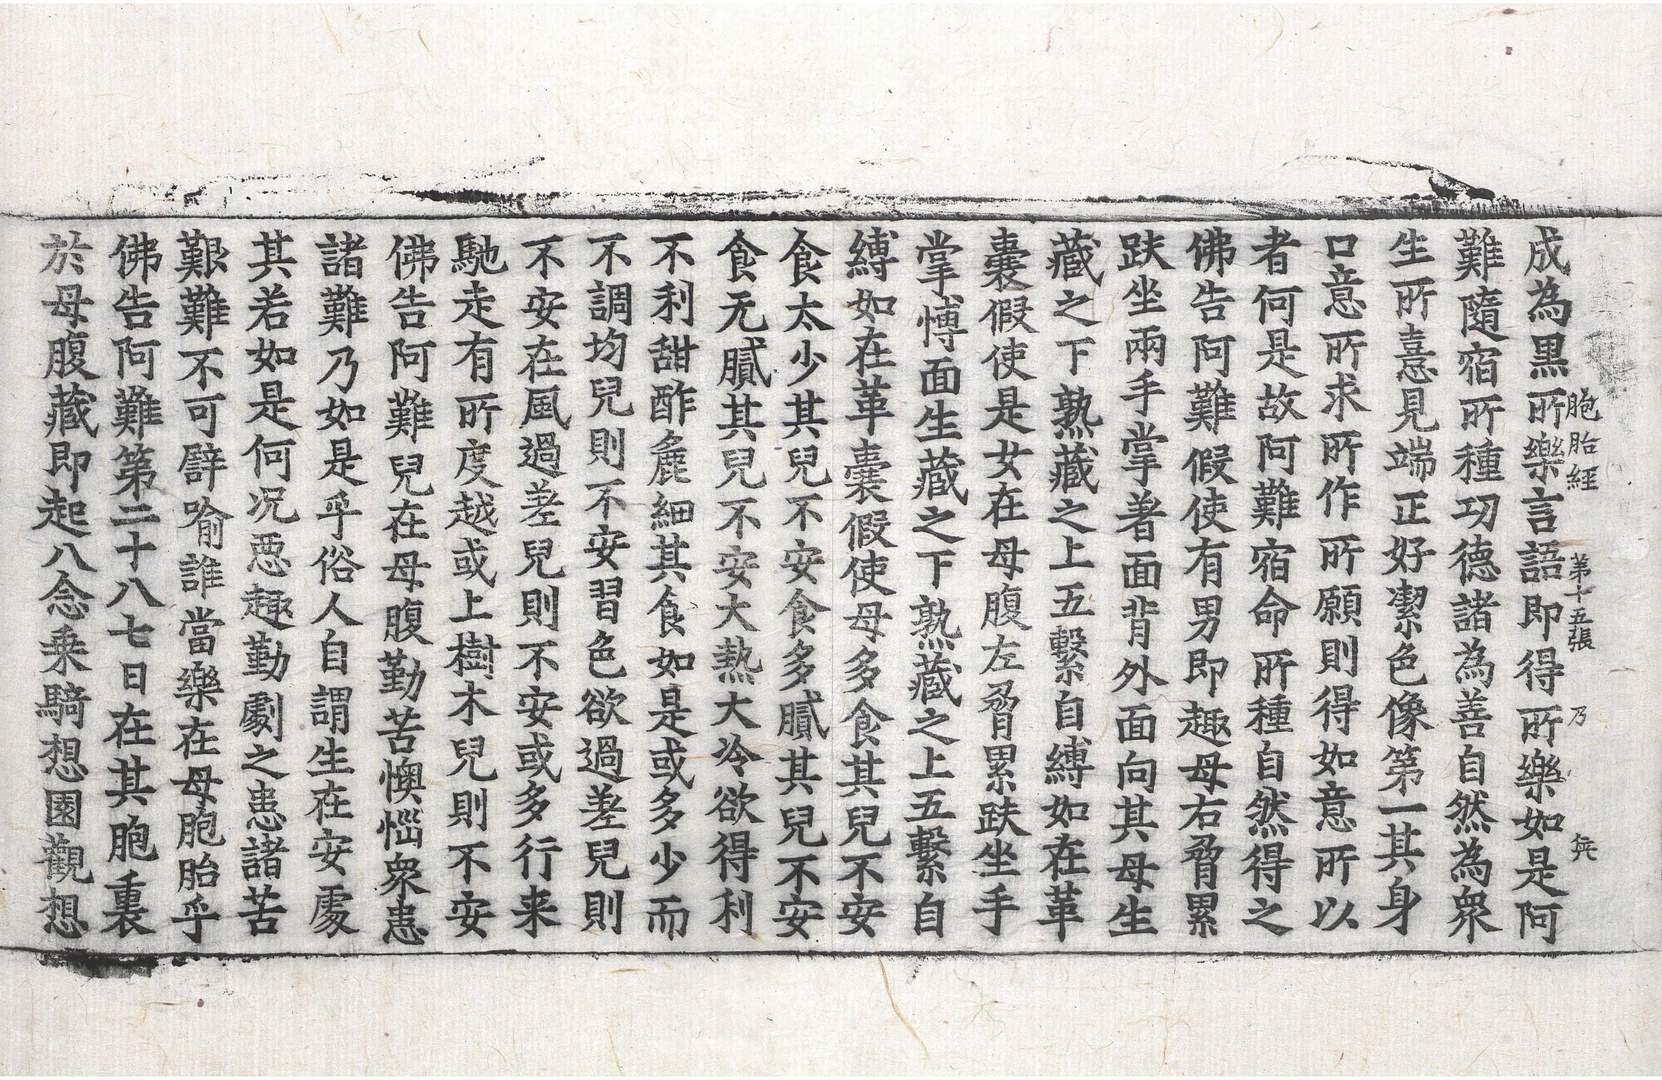 成為黒所樂言語即得所樂如是阿
胞胎經 第十五張 乃 兵
難隨宿所種功德諸為善自然為衆
生所憙見端正好潔色像第一其身
口意所求所作所願則得如意所以
者何是故阿難宿命所種自然得之
佛告阿難假使有男即趣母右脅累
趺坐兩手掌著面背外面向其母生
藏之下熟藏之上五繫自縛如在革
囊假使是女在母腹左脅累趺坐手
掌愽面生藏之下熟藏之上五繫自
縛如在革囊假使母多食其兒不安
食太少其兒不安食多膩其兒不安
食无膩其兒不安大熱大冷欲得利
不利甜酢麁細其食如是或多少而
不調均兒則不安習色欲過差兒則
不安在風過差兒則不安或多行来
馳走有所度越或上樹木兒則不安
佛告阿難兒在母腹勤苦懊惱衆患
諸難乃如是乎俗人自謂生在安處
其若如是何况惡趣勤劇之患諸苦
艱難不可譬喻誰當樂在母胞胎乎
佛告阿難第二十八七日在其胞裏
於母腹藏即起八念乘騎想園觀想